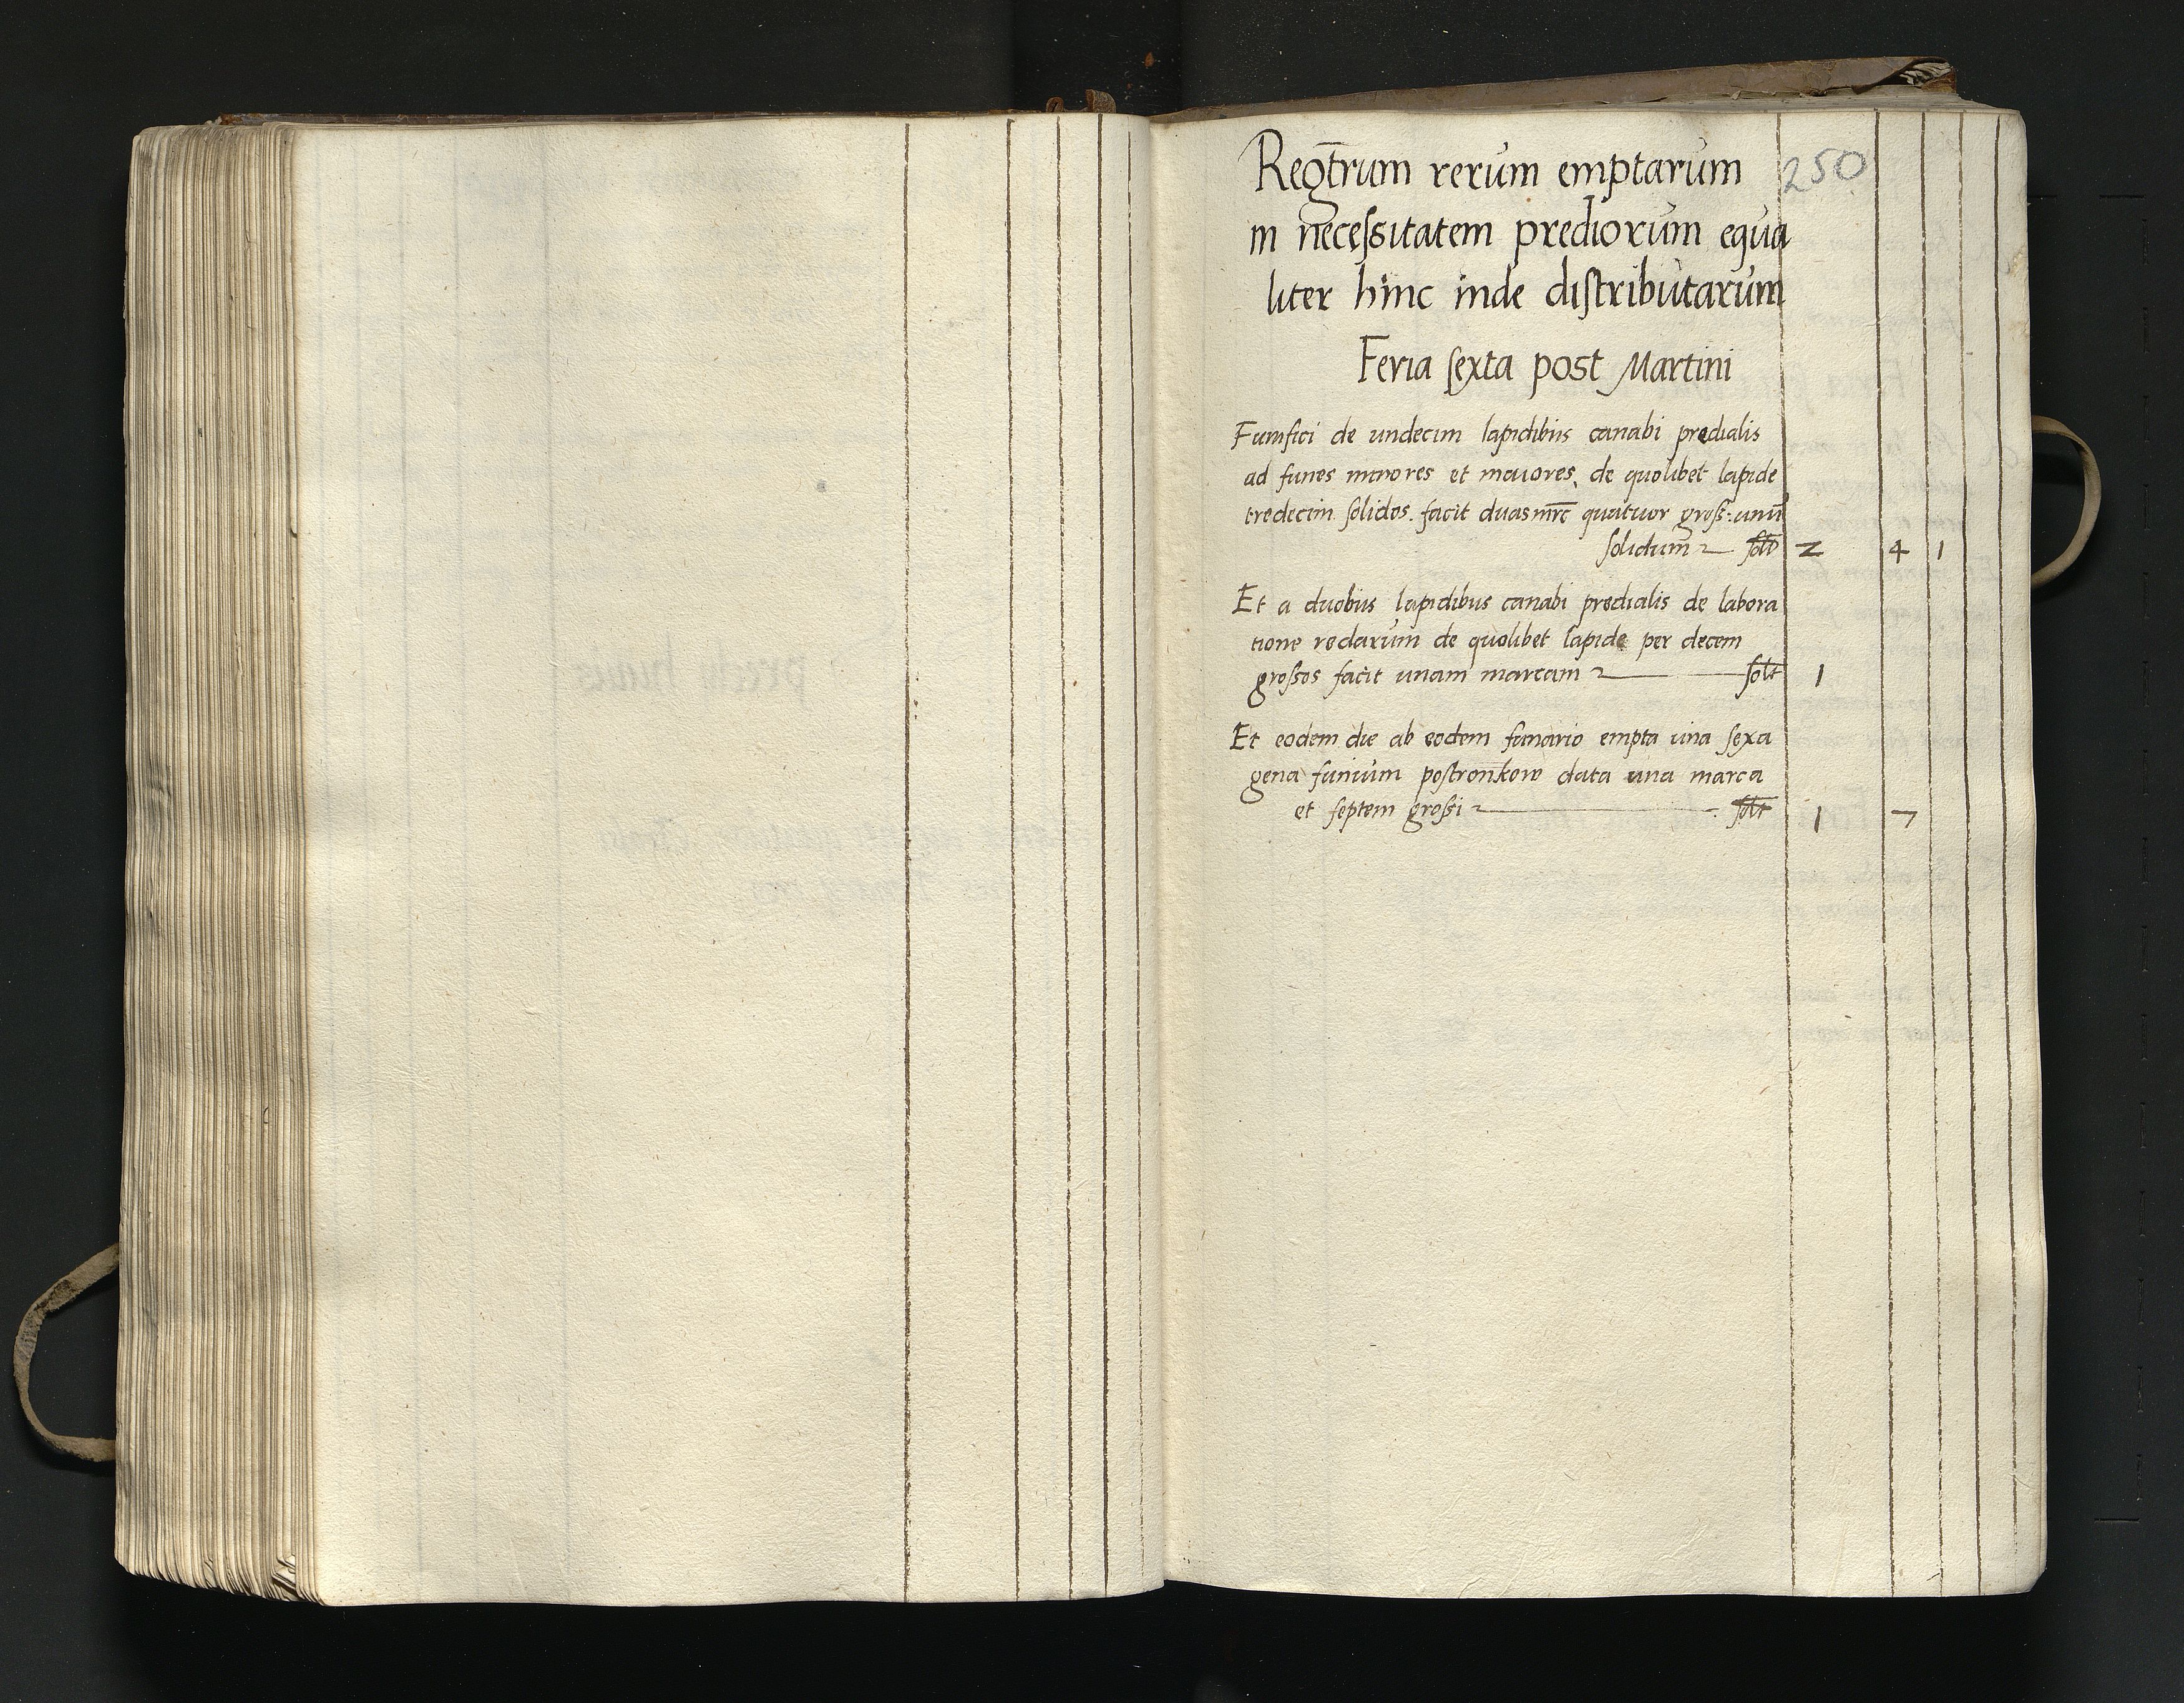 Regr̄trum rerum emptarum
250
in necessitatem prediorum equa
liter hinc inde distributarum
Feria sexta post Martini
Funifici de undecim lapidibus canabi predialis
ad funes minores et maiores, de quolibet lapide
tredecim solidos. facit duas mrc̄ quatuor gross: unū
solidum solt 2 4 1
Et a duobus lapidibus canabi predialis de labora
tione redarum de quolibet lapide per decem
grossos facit unam marcam solt 1
Et eodem die ab eodem funario empta una sexa
gena funium postronkow data una marca
et septem grossi solt 1 7